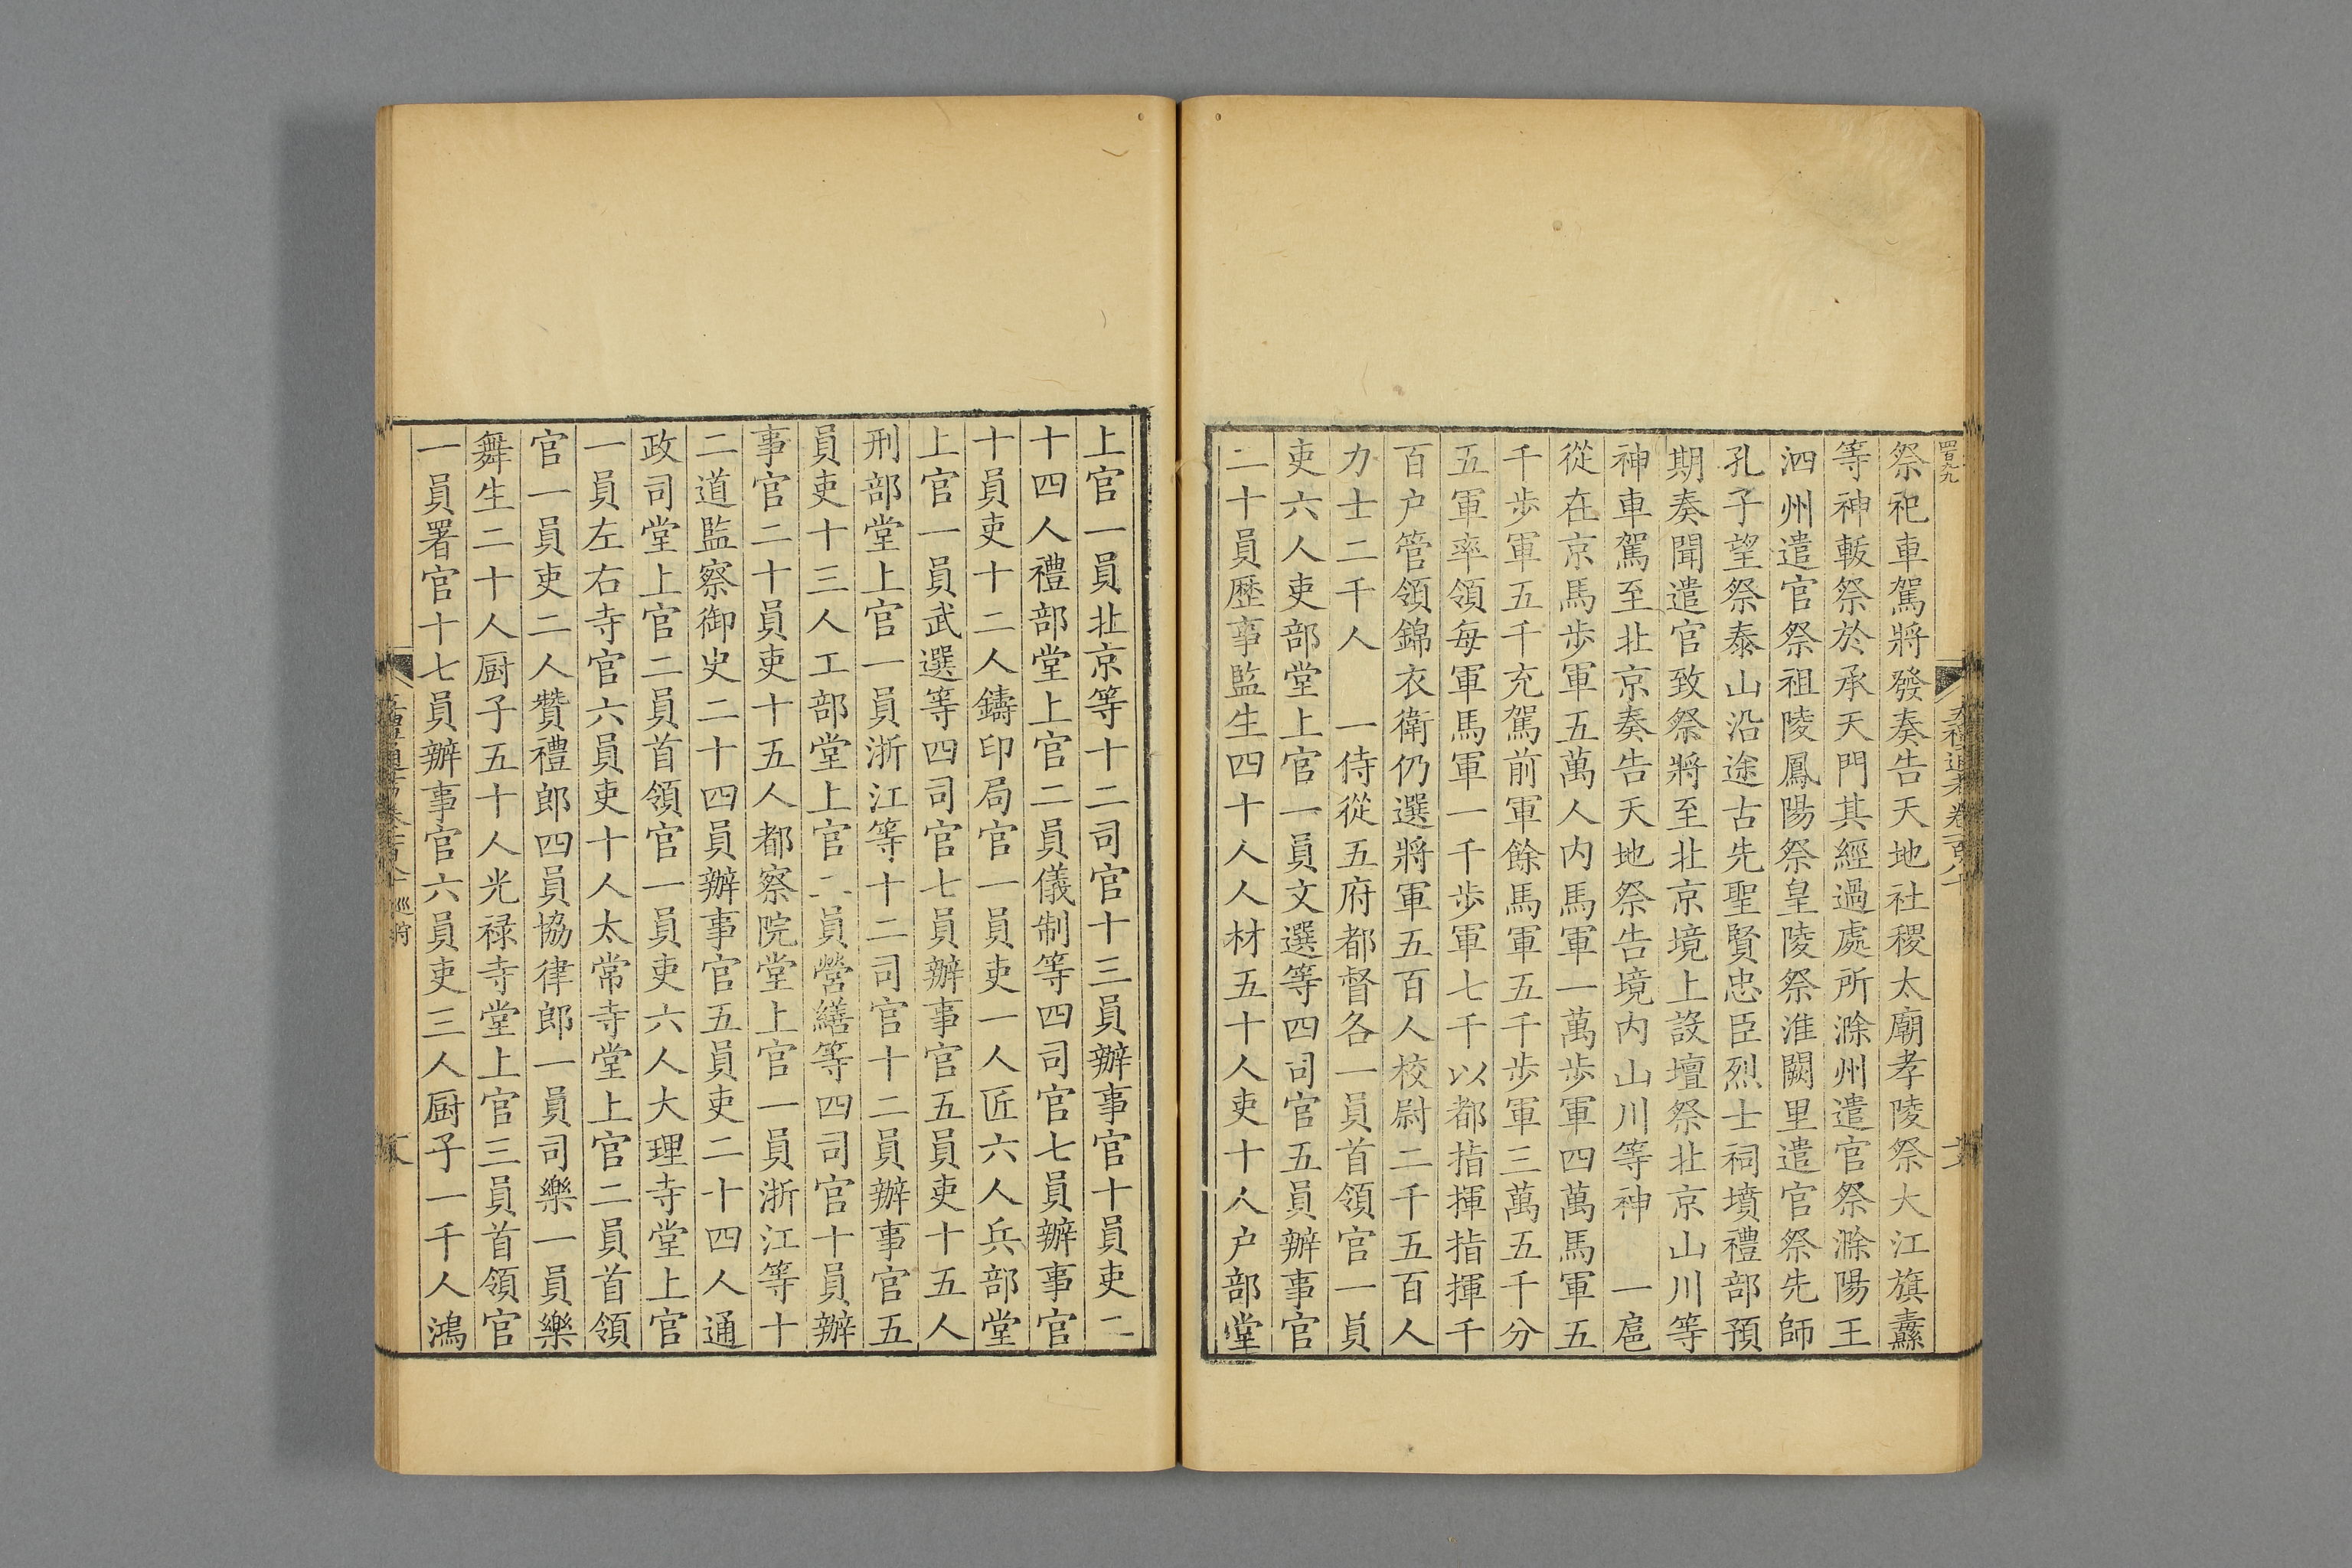 祭祀車駕將發奏告天地社稷太廟孝陵祭大江旗纛
等神軷祭於承天門其經過處所滁州遣官祭滁陽王
泗州遣官祭祖陵鳳陽祭皇陵祭淮闕里遣官祭先師
孔子望祭泰山沿途古先聖賢忠臣烈士祠墳禮部預
期奏聞遣官致祭將至北京境上設壇祭北京山川等
神車駕至北京奏告天地祭告境内山川等神　一扈
從在京馬步軍五萬人内馬軍一萬步軍四萬馬軍五
千步軍五千充駕前軍餘馬軍五千步軍三萬五千分
五軍率領每軍馬軍一千步軍七千以都指揮指揮千
百户管領錦衣衛仍選將軍五百人校尉二千五百人
力士二千人　一侍從五府都督各一員首領官一員
吏六人吏部堂上官一員文選等四司官五員辦事官
二十員歷事監生四十人人材五十人吏十人户部堂
上官一員北京等十二司官十三員辦事官十員吏二
十四人禮部堂上官二員儀制等四司官七員辦事官
十員吏十二人鑄印局官一員吏一人匠六人兵部堂
上官一員武選等四司官七員辦事官五員吏十五人
刑部堂上官一員浙江等十二司官十二員辦事官五
員吏十三人工部堂上官二員營繕等四司官十員辦
事官二十員吏十五人都察院堂上官一員浙江等十
二道監察御史二十四員辦事官五員吏二十四人通
政司堂上官二員首領官一員吏六人大理寺堂上官
一員左右寺官六員吏十人太常寺堂上官二員首領
官一員吏二人贊禮郎四員協律郎一員司樂一員樂
舞生二十人厨子五十人光禄寺堂上官三員首領官
一員署官十七員辦事官六員吏三人厨子一千人鴻